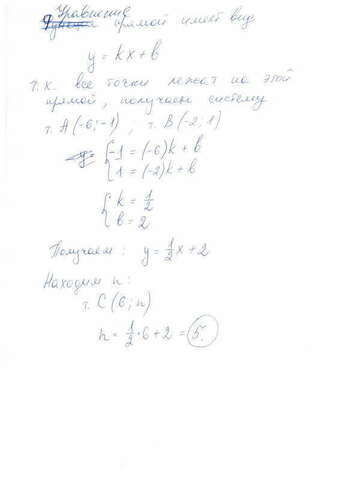 Уравнение
прямой имеет вид
y = kx + b
т.к. все точки лежат на этой
прямой, получаем систему
т. A(-6; -1) ; т. B(-2; 1)
{-1 = (-6)k + b
{1 = (-2)k + b
{k = 1/2
{b = 2
Получаем: y = 1/2 x + 2
Находим n:
т. C(6; n)
n = 1/2 · 6 + 2 = 5.